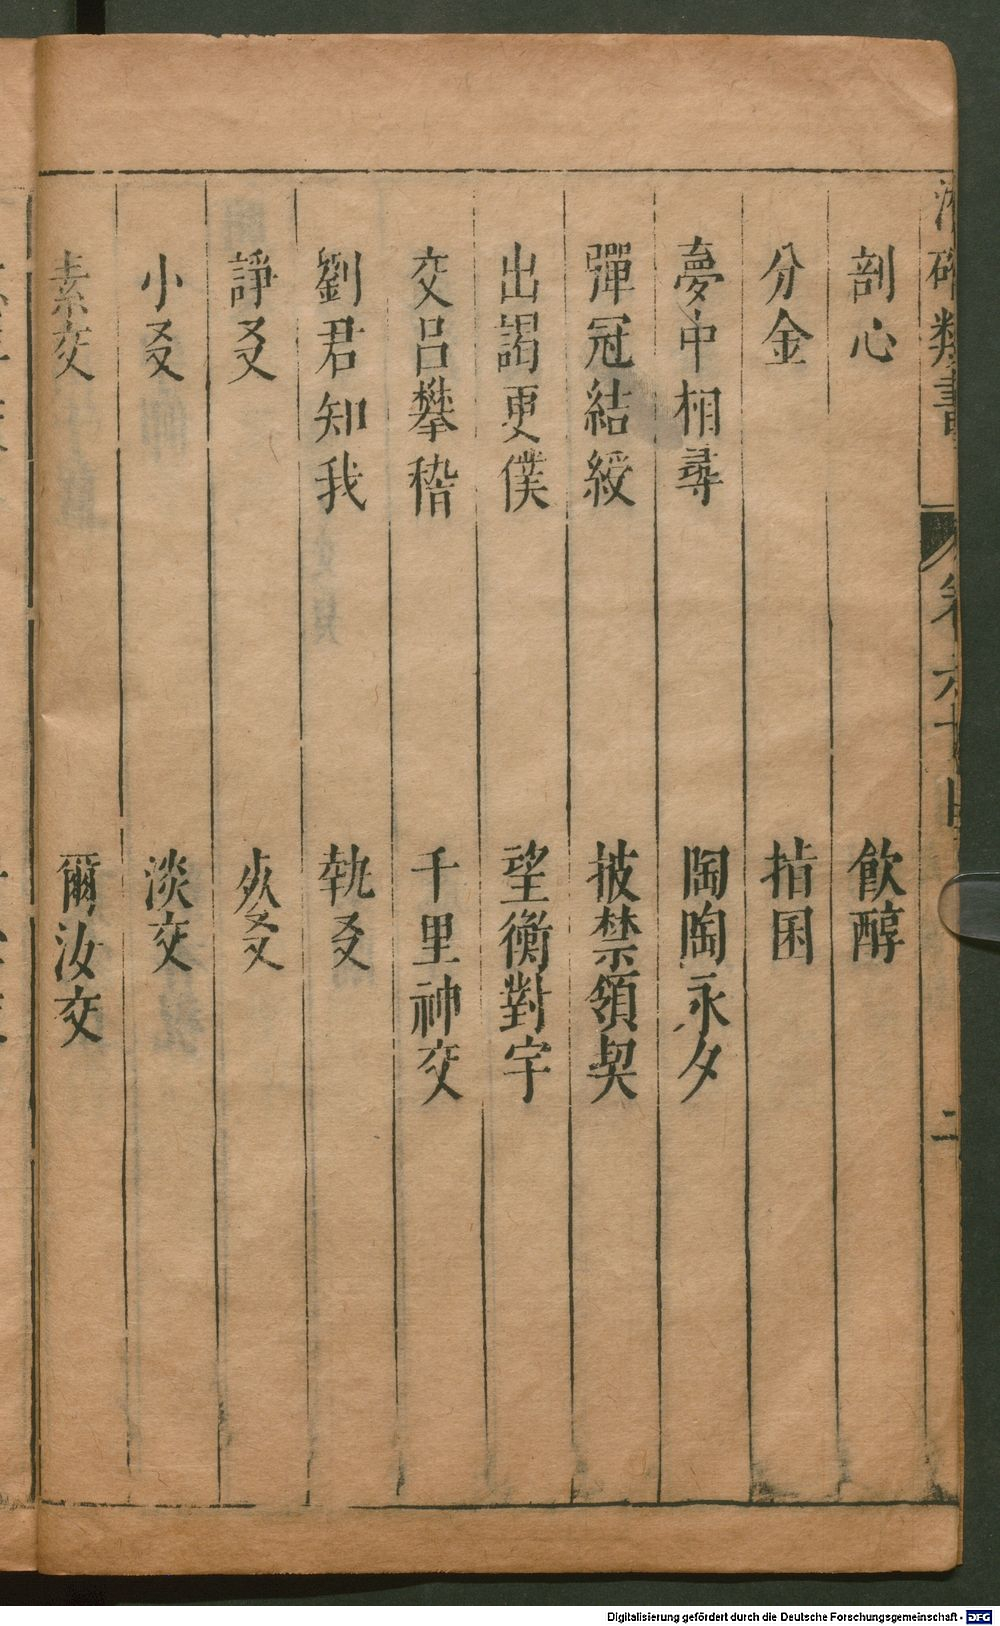 剖心　飲醇
分金　指囷
夢中相尋　陶陶永夕
彈冠結綬　披襟領契
出謁更僕　望衡對宇
交呂攀嵇　千里神交
劉君知我　執友
諍友　死友
小友　淡交
素交　爾汝交
類書
二
Digitalisierung gefördert durch die Deutsche Forschungsgemeinschaft - DFG